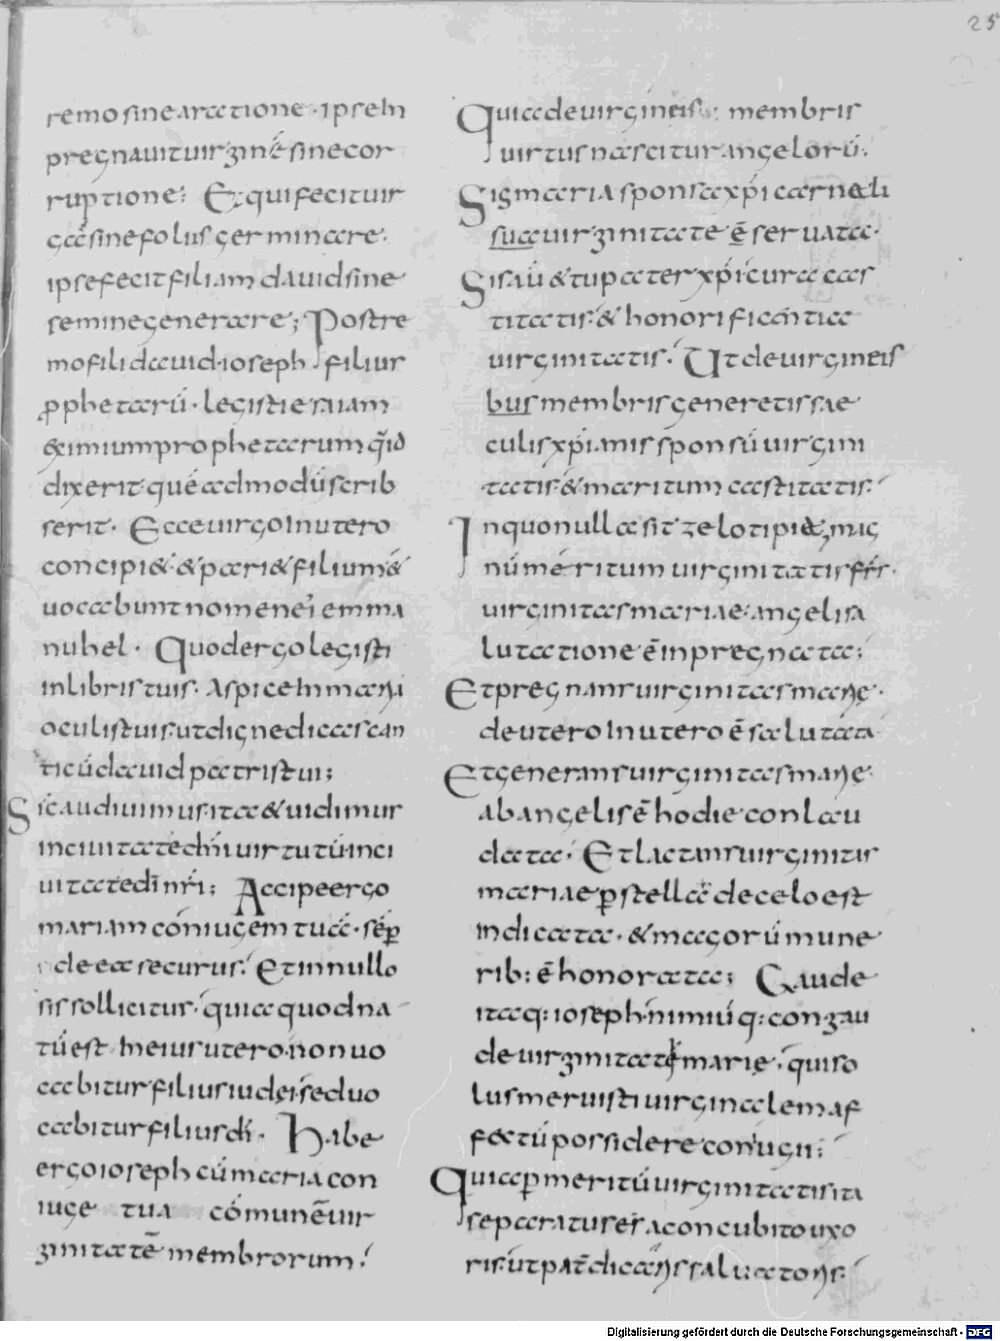 25
remo sine aractione · ipse In
pregnauit uirginē sine cor
ruptione; Et qui fecit uir
gā sine folus germinare.
ipse fecit filiam dauid sine
semine generare; Postre
mo fili dauid · ioseph filiur
prophetarū · legisti esaiam
eximium prophetarum q̄id
dixerit quē admodū scrib
serit. Ecce uirgo In utero
concipiet · & pariet filium &
uocabunt nomen ei emma
nuhel. Quod ergo legisti
in libris tuis. Aspice In mariȩ
oculis tuis. ut digne dicas can
ticū dauid patris tui;
Sic audiuimus. ita & uidimus
in ciuitate dn̄i uirtutū. in ci
uitate dī nr̄i; Accipe ergo
mariam coniugem tuā. sēp
de ea securus. Et in nullo
sis sollicitus. quia quod na
tū est In eius utero. non uo
cabitur filius iudei. sed uo
cabitur filius dī. Habe
ergo ioseph cū maria con
iuge tua cōmunē uir
ginitatē membrorum;
Quia de uirgineis membris
uirtus nascitur angelorū.
Sig maria sponsa xp̄i carnali
sua uirginitate ē seruata.
Sis aū & tu pater xp̄i cura cas
titatis. & honorificantia
uirginitatis. Ut de uirgineis
bus membris generetis sae
culis xp̄i. amis sponsū uirgini
tatis. & maritum castitatis.
In quo nulla sit zelotipia. mag
nū meritum uirginitatis frr.
uirginitas mariae. angeli sa
lutatione ē inpregnata;
Et pregnans uirginitas mariȩ.
de utero In utero ē salutata
Et generans uirginitas mariȩ.
ab angelis ē hodie conlau
data. Et lactans uirginitas
mariae p stellā de celo est
Indicata. & magorū mune
rib: ē honorata; Gaude
itaq: ioseph nimiū q: congau
de uirginitate mariȩ. qui so
lus meruisti uirginalem af
fectū possidere coniugii;
Quia p meritū uirginitatis ita
separatus es a concubito uxo
ris. ut pat dicaris saluatoris.
Digitalisierung gefördert durch die Deutsche Forschungsgemeinschaft - DFG